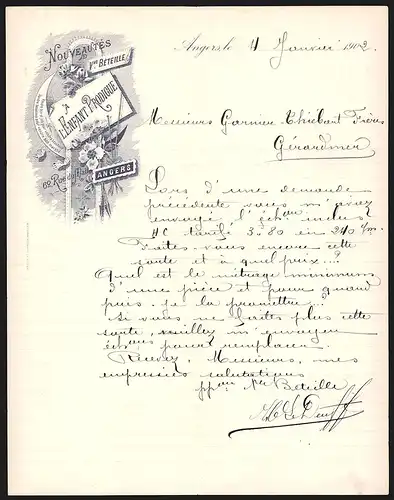 NOUVEAUTÉS
Vve BÉTEILLE
A
L'ENFANT PRODIGUE
ANGERS
Angers, le 4 Janvier 1902
Messieurs Garnier Thiébaut Frères
Gérardmer
Lors d'une demande
précédente vous m'aviez
envoyé l'échon inclus
HC tarifé 3.80 en 240 c/m.
Faites-vous encore cette
sorte et à quel prix..?
Quel est le métrage minimum
d'une pièce et pour quand
puis-je la promettre..?
Si vous ne faites plus cette
sorte, veuillez m'envoyer
échons pour remplacer.
Recevez, Messieurs, mes
empressées salutations
ppon Vve Béteille